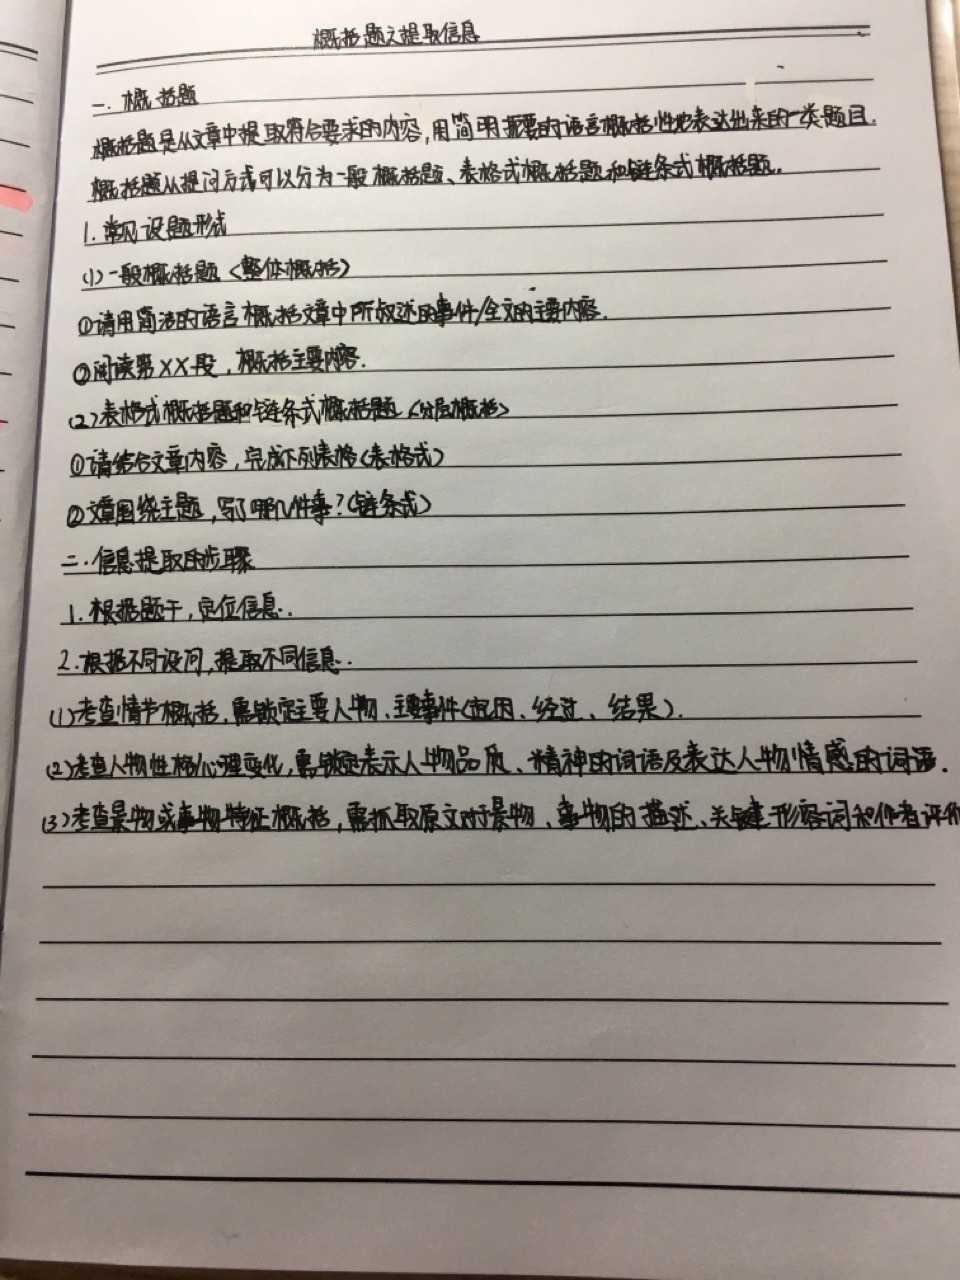 概括题之提取信息
一.概括题
概括题是从文章中提取符合要求的内容,用简明扼要的语言概括性地表达出来的一类题目.
概括题从提问方式可以分为一般概括题、表格式概括题和链条式概括题.
1.常见设题形式
(1)一般概括题<整体概括>
①请用简洁的语言概括文章中所叙述的事件/全文的主要内容.
②阅读第XX段,概括主要内容.
(2)表格式概括题和链条式概括题<分层概括>
①请结合文章内容,完成下列表格(表格式)
②文章围绕主题,写了哪几件事?(链条式)
二.信息提取的步骤
1.根据题干,定位信息.
2.根据不同设问,提取不同信息.
(1)考查情节概括,需锁定主要人物、主要事件(起因、经过、结果).
(2)考查人物性格/心理变化,需锁定表示人物品质、精神的词语及表达人物情感的词语.
(3)考查景物或事物特征概括,需抓取原文对景物、事物的描述、关键形容词和作者评价